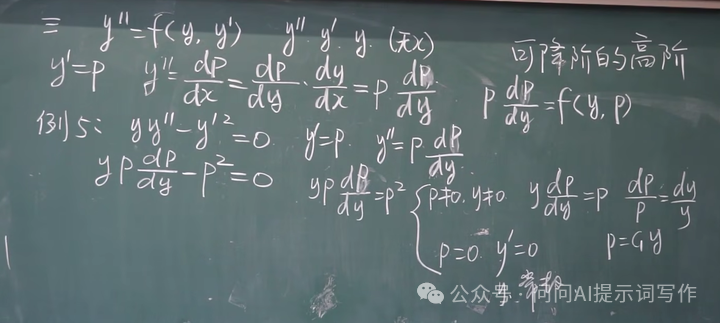 三 y''=f(y, y') y''. y'. y. (无x)
可降阶的高阶
y'=p y''=dp/dx=dp/dy·dy/dx=p dp/dy
p dp/dy=f(y, p)
例5: yy''-y'²=0 y'=p. y''=p dp/dy.
yp dp/dy-p²=0
yp dp/dy=p² { p≠0. y≠0 y dp/dy=p dp/p=dy/y
p=C₁y
p=0. y'=0
常数
公众号·问问AI提示词写作